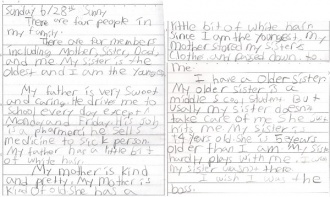 Sunday 6/28th Sunny
There are four people in
my family.
There are four members
including Mother, Sister, Dad,
and me My Sister is the
oldest and I am the Youngest
My father is very Sweet
and caring. He drive me to
school every day except
Monday and Friday. His job
is phermers he sells
medicine to sick person.
My father has a little bit
of white hair.
My mother is kind
and pretty. My mother is
kind of old she has a
little bit of white hair
Since I am the youngest, my
mother stored my sisters
clothe and passed down to
me.
I have a Older Sister.
My older sister is a
middle school student. But
usally my sister doesn't
take care of me she
hits me My sister is
14 years old she is 5 years
older than I am My sister
hardly plays with me. I wish
my sister wasn't there
I wish I was the
boss.